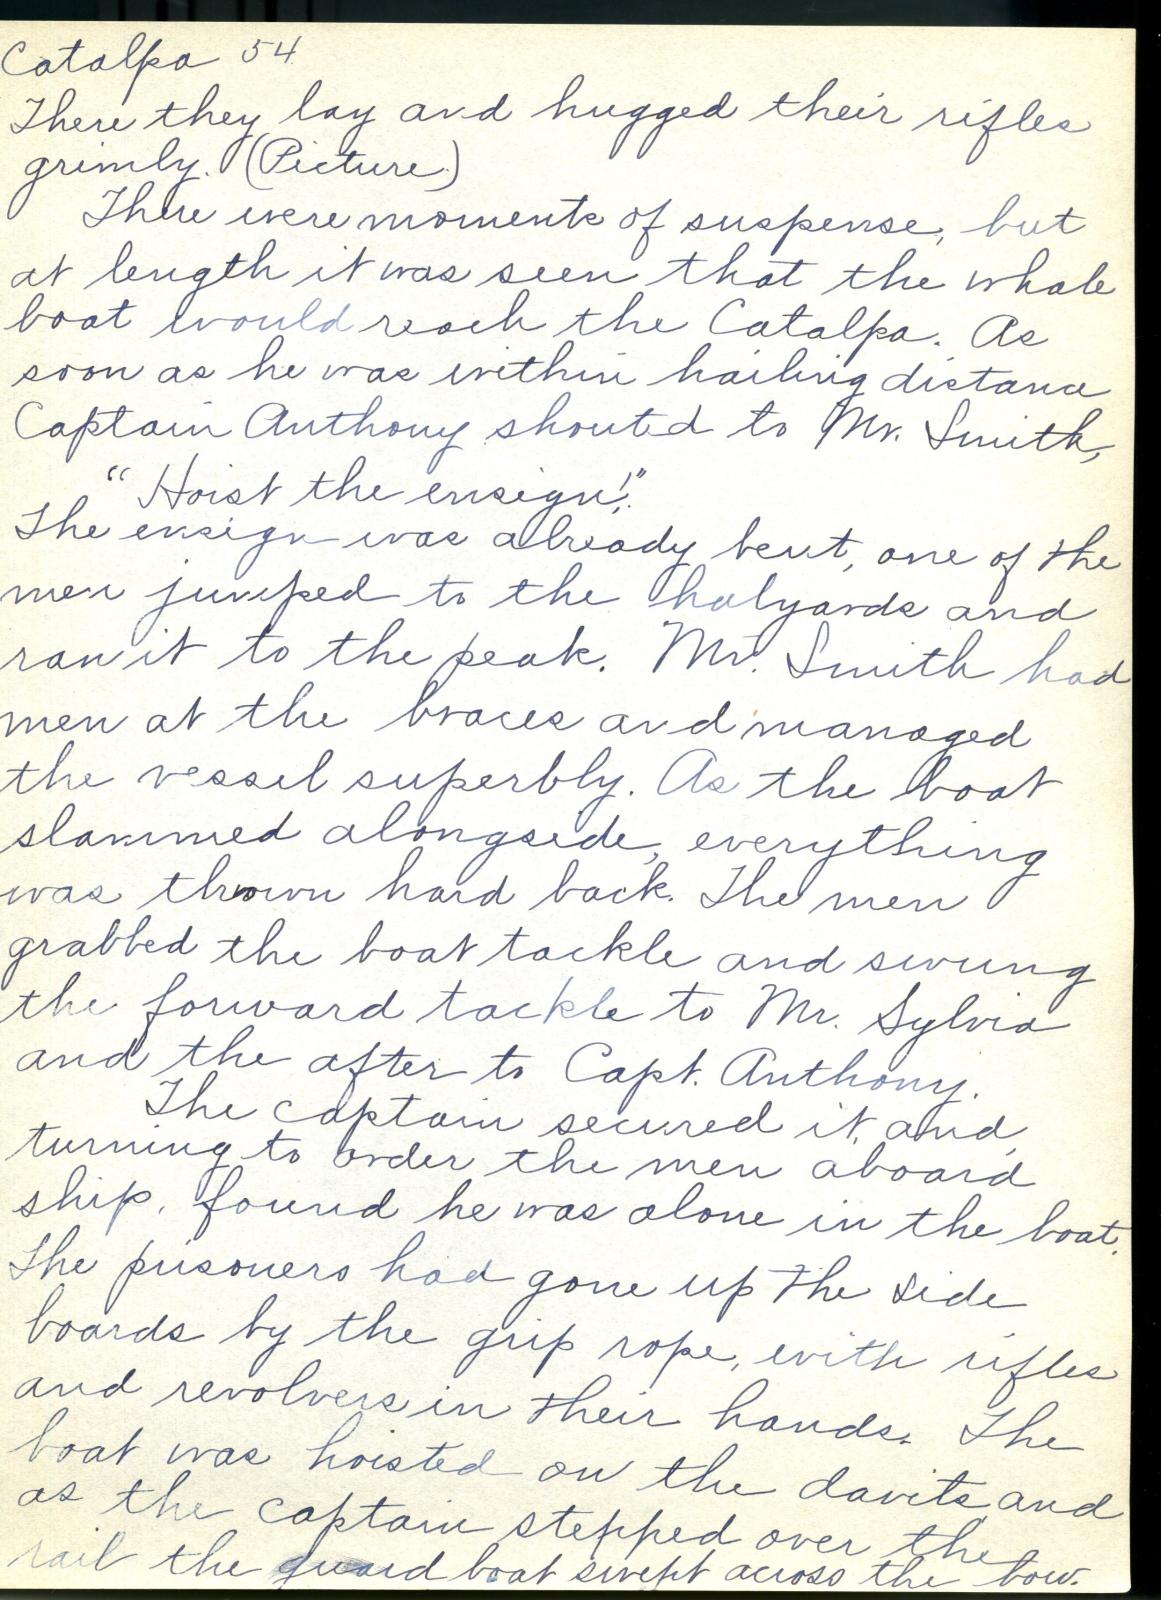 Catalpa 54
There they lay and hugged their rifles
grimly. (Picture)
There were moments of suspense, but
at length it was seen that the whale
boat would reach the Catalpa. As
soon as he was within hailing distance
Captain Anthony shouted to Mr. Smith,
"Hoist the ensign!"
The ensign was already bent, one of the
men jumped to the halyards and
ran it to the peak. Mr. Smith had
men at the braces and managed
the vessel superbly. As the boat
slammed alongside, everything
was thrown hard back. The men
grabbed the boat tackle and swung
the forward tackle to Mr. Sylvia
and the after to Capt. Anthony.
The captain secured it, and,
turning to order the men aboard
ship, found he was alone in the boat.
The prisoners had gone up the side
boards by the grip rope, with rifles
and revolvers in their hands. The
boat was hoisted on the davits and
as the captain stepped over the
rail the guard boat swept across the bow.